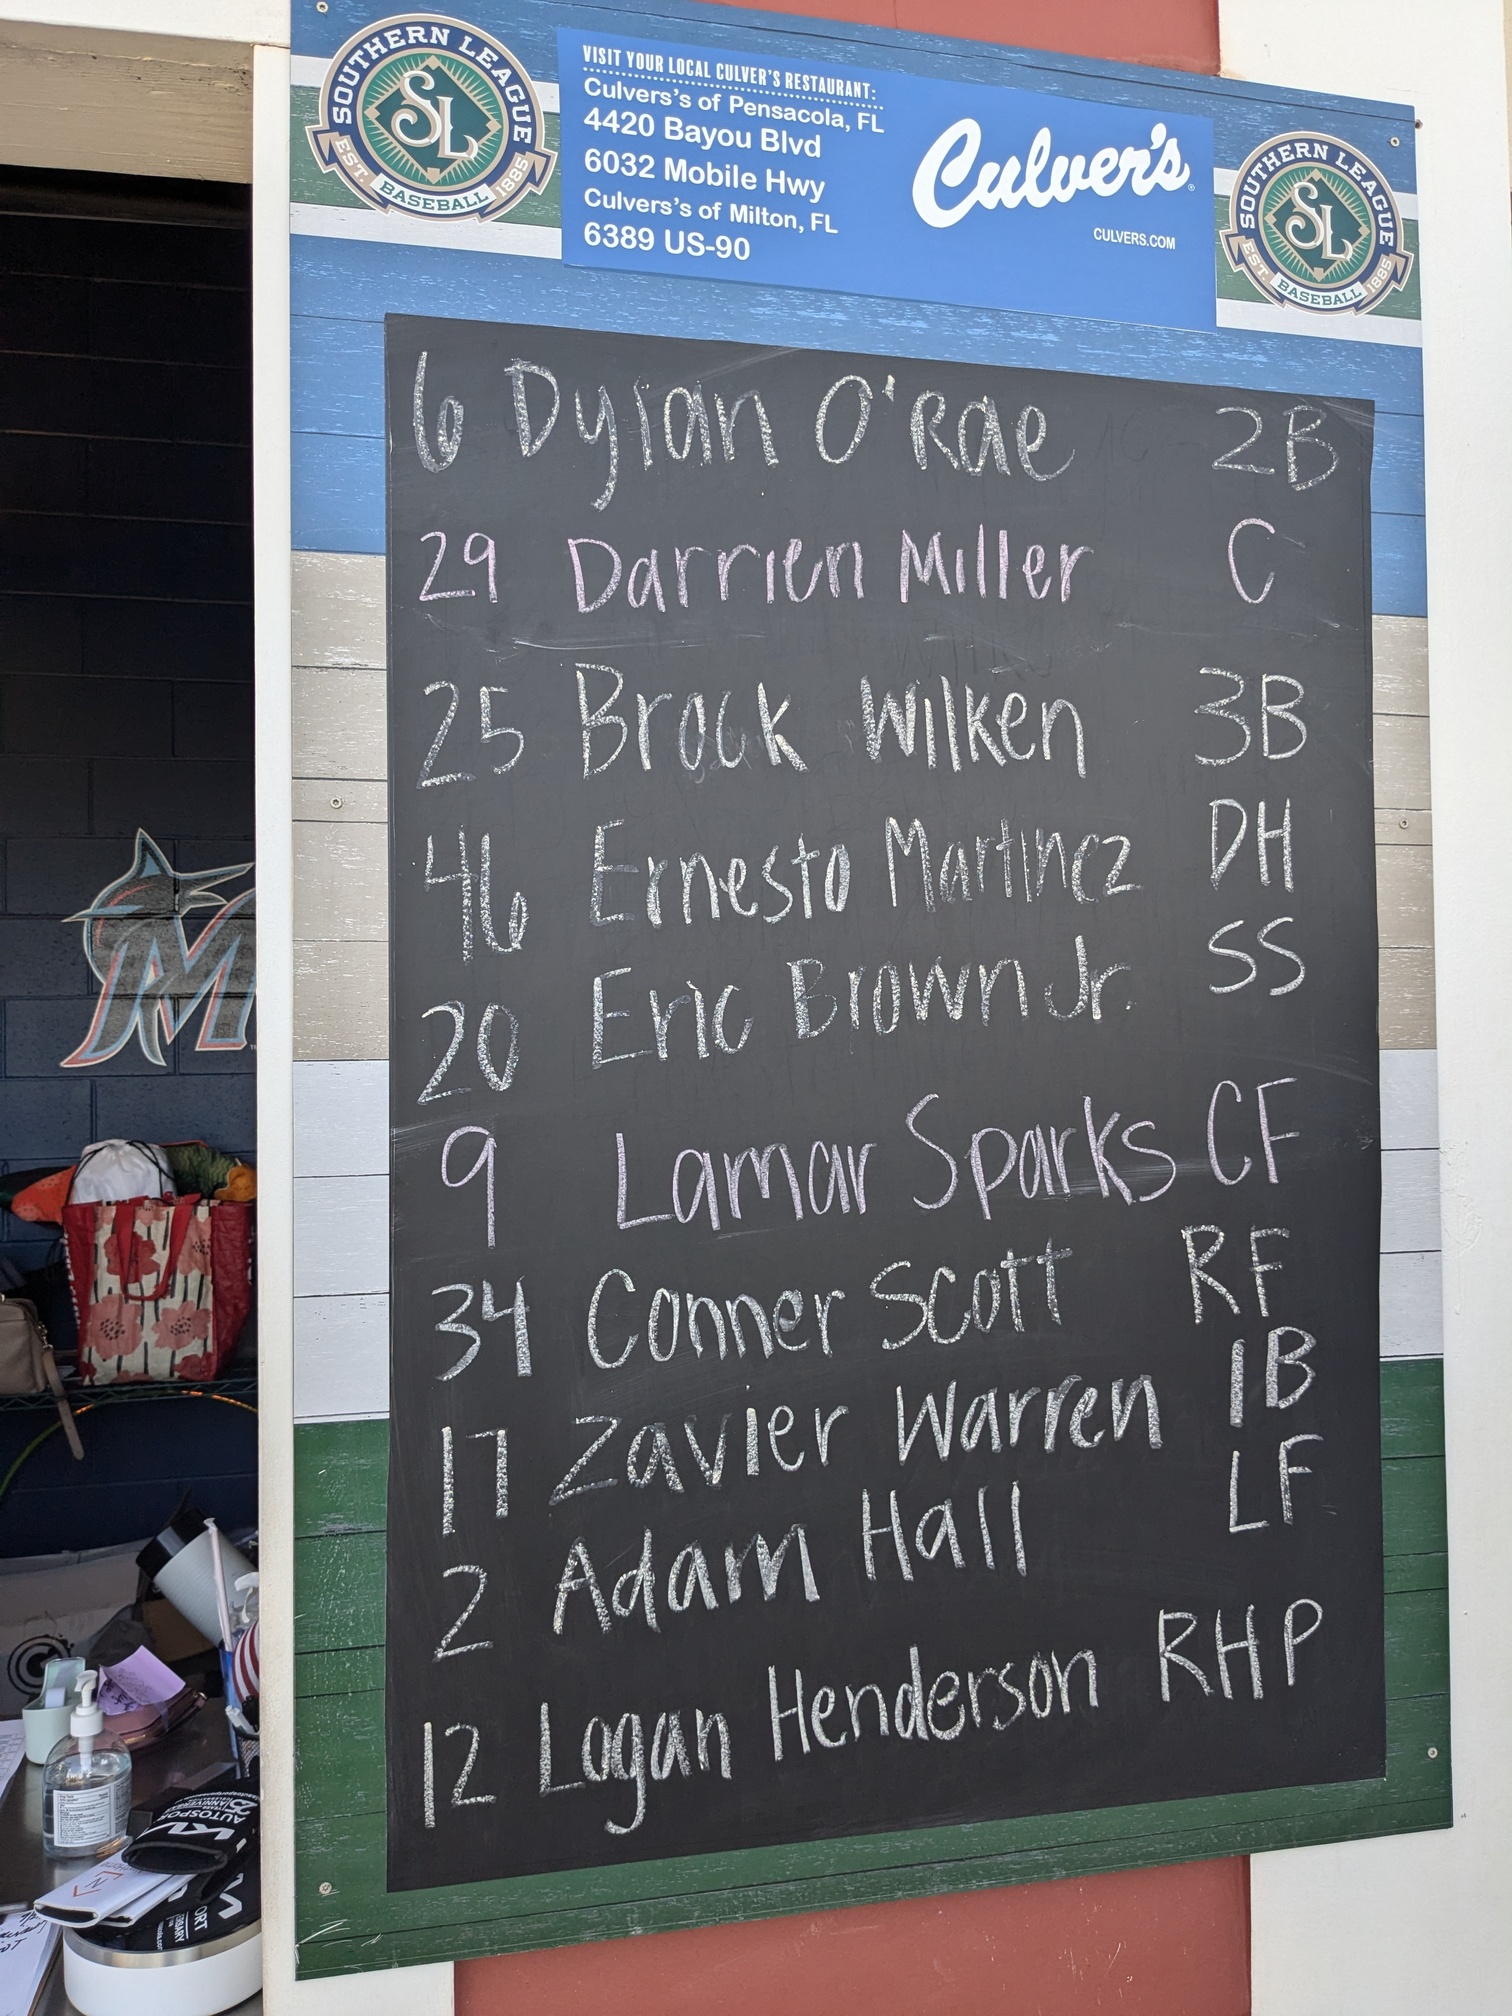 SOUTHERN LEAGUE
SL
EST. 1885
BASEBALL
VISIT YOUR LOCAL CULVER'S RESTAURANT:
Culvers's of Pensacola, FL
4420 Bayou Blvd
6032 Mobile Hwy
Culvers's of Milton, FL
6389 US-90
Culver's
CULVERS.COM
SOUTHERN LEAGUE
SL
EST. 1885
BASEBALL
6 Dylan O'Rae 2B
29 Darrien Miller C
25 Brock Wilken 3B
46 Ernesto Martinez DH
20 Eric Brown Jr. SS
9 Lamar Sparks CF
34 Conner Scott RF
17 Zavier Warren 1B
2 Adam Hall LF
12 Logan Henderson RHP
M
AUTOSPORT
ANNIVERSARY
25